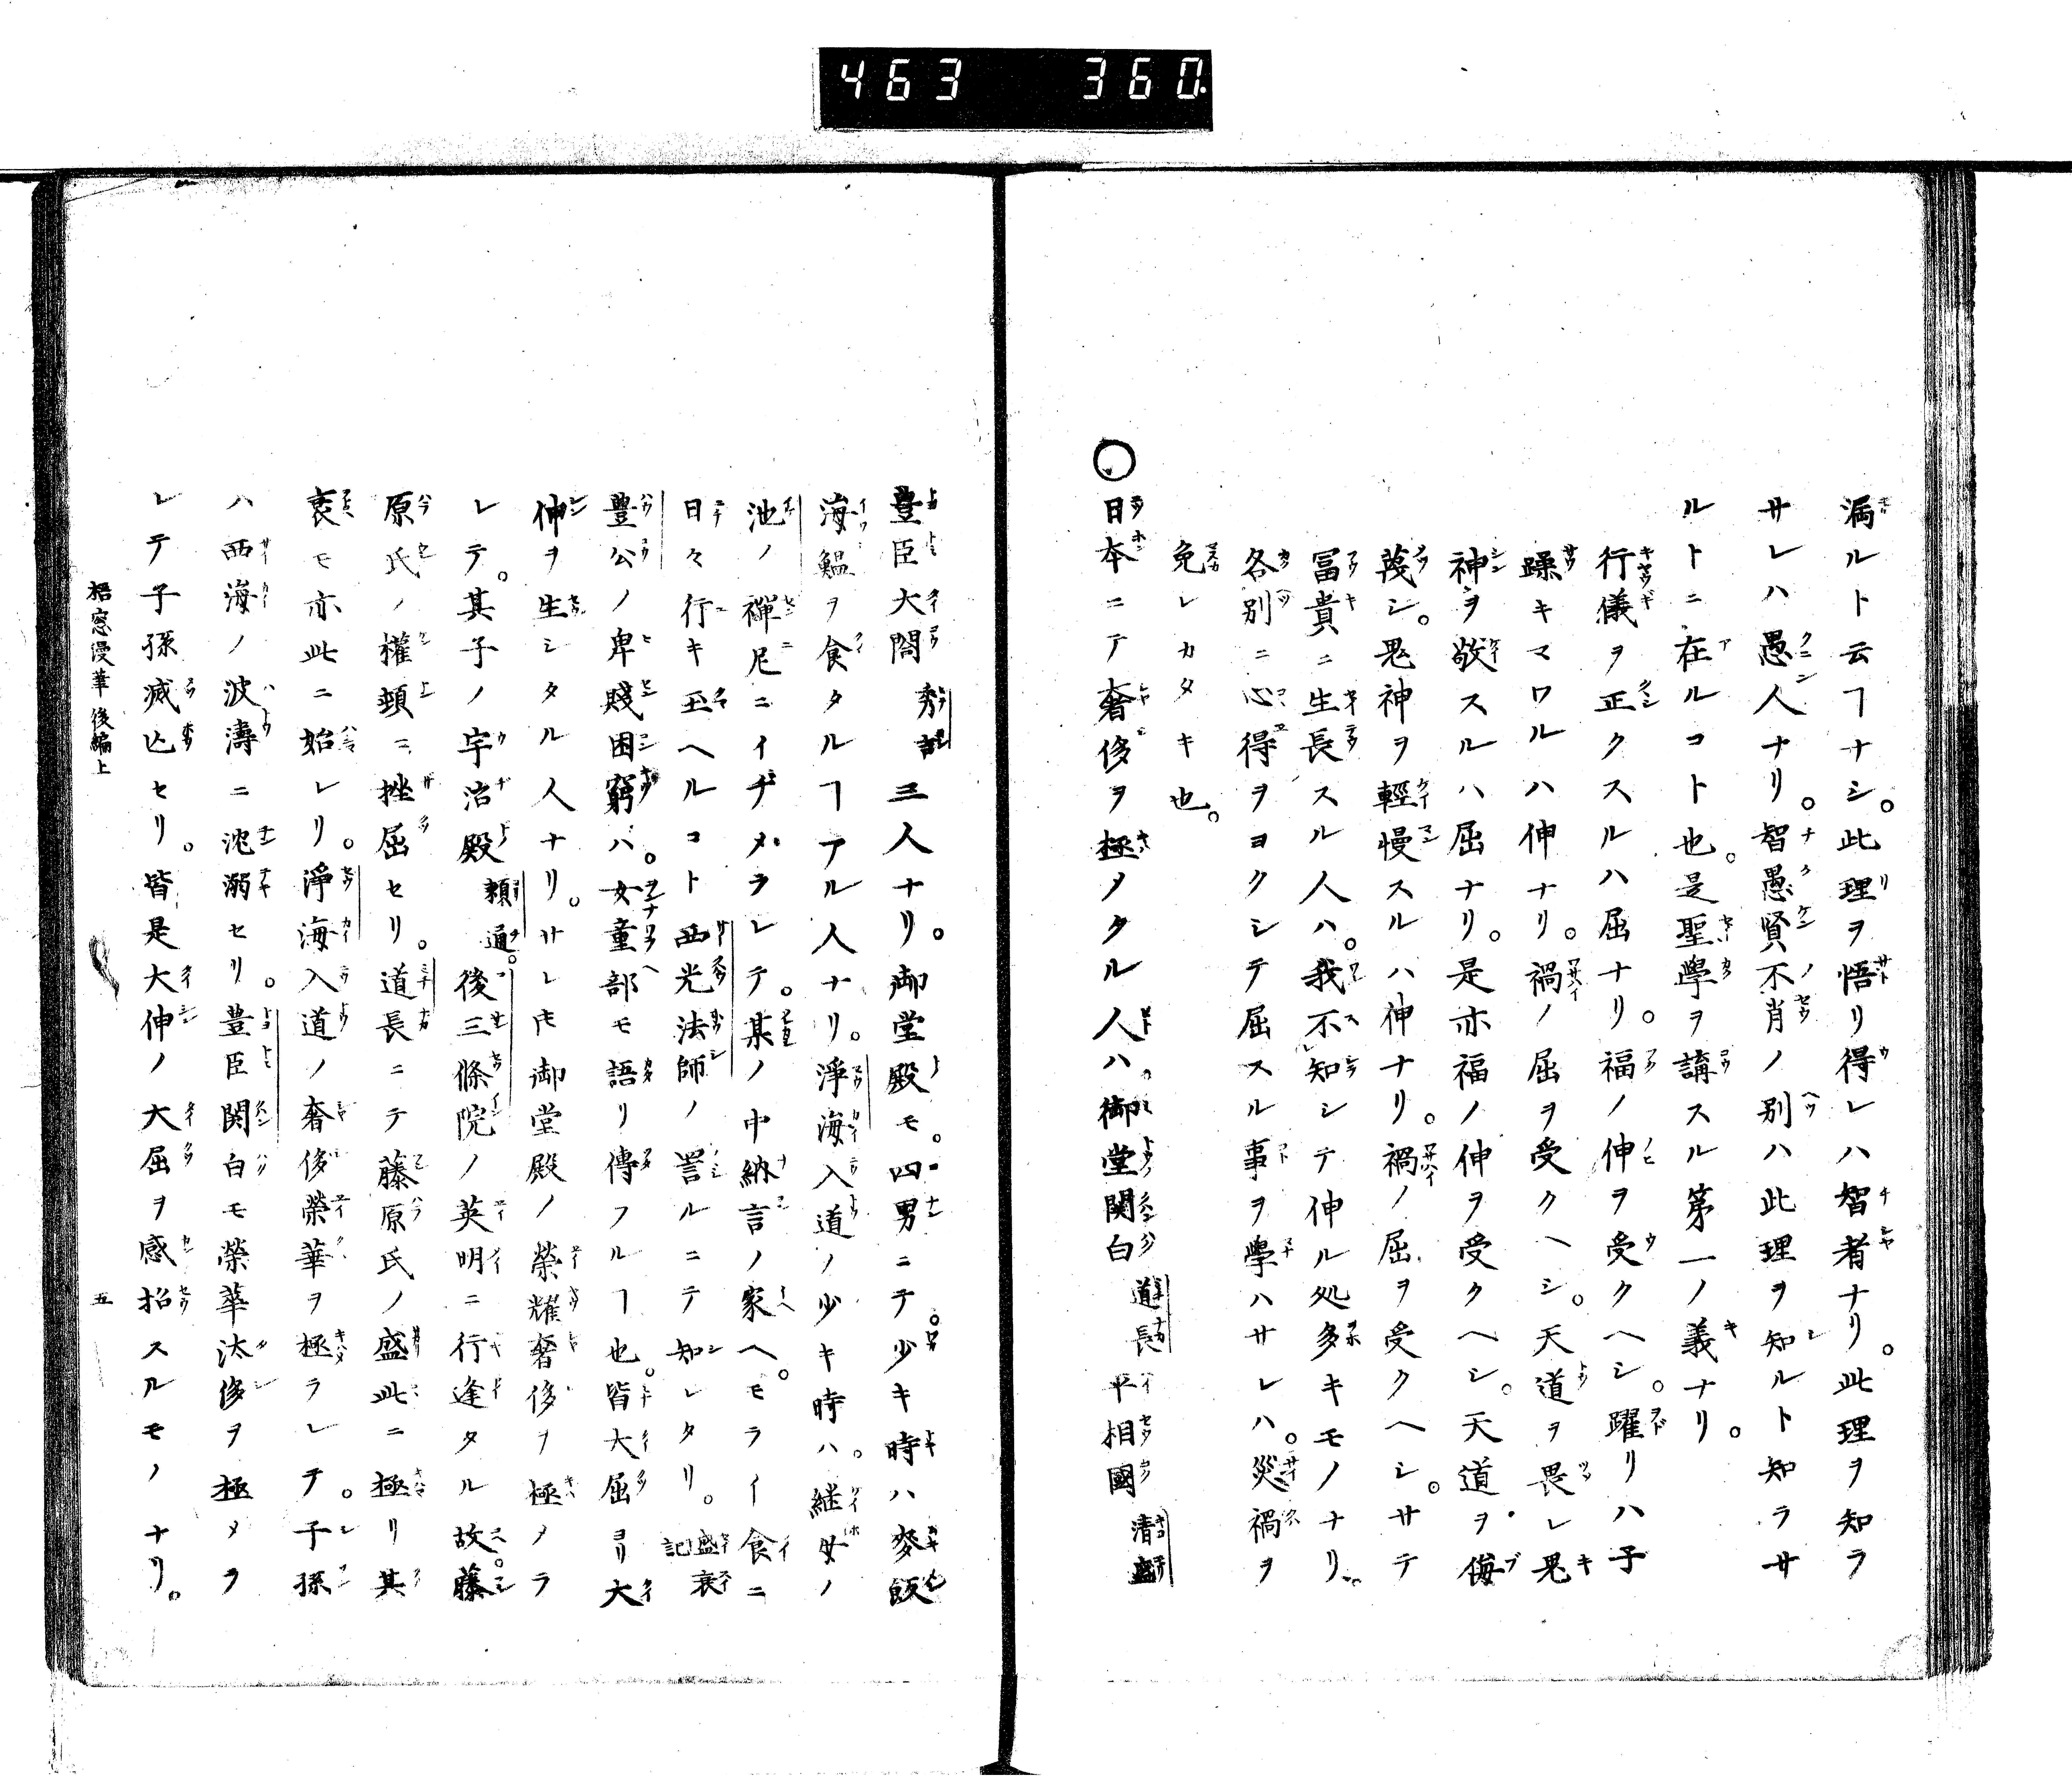 463 360
漏ルト云ヿナシ。此理ヲ悟リ得レハ智者ナリ。此理ヲ知ラ
サレハ愚人ナリ。智愚賢不肖ノ別ハ此理ヲ知ルト知ラサ
ルトニ在ルコト也。是聖學ヲ講スル第一ノ義ナリ。
行儀ヲ正クスルハ屈ナリ。福ノ伸ヲ受クヘシ。躍リハ子
躁キマワルハ伸ナリ。禍ノ屈ヲ受クヘシ。天道ヲ畏レ鬼
神ヲ敬スルハ屈ナリ。是亦福ノ伸ヲ受クヘシ。天道ヲ侮
蔑シ。鬼神ヲ輕慢スルハ伸ナリ。禍ノ屈ヲ受クヘシ。サテ
冨貴ニ生長スル人ハ。我不知シテ伸ル処多キモノナリ。
各別ニ心得ヲヨクシテ屈スル事ヲ學ハサレハ。災禍ヲ
免レカタキ也。
○日本ニテ奢侈ヲ極メタル人ハ。御堂関白道長平相國清盛
豊臣大閤秀吉三人ナリ。御堂殿モ。四男ニテ。少キ時ハ麥飯
海鰮ヲ食タルヿアル人ナリ。淨海入道ノ少キ時ハ。継母ノ
池ノ禪尼ニイヂメラレテ。某ノ中納言ノ家ヘ。モライ食ニ
日々行キ玉ヘルコト西光法師ノ詈ルニテ知レタリ。盛衰記
豊公ノ卑賤困窮ハ。女童部モ語リ傳フルヿ也。皆大屈ヨリ大
伸ヲ生シタル人ナリ。サレ𪜈御堂殿ノ榮耀奢侈ヲ極メラ
レテ。其子ノ宇治殿頼通。後三條院ノ英明ニ行逢タル故。藤
原氏ノ權頓ニ挫屈セリ。道長ニテ藤原氏ノ盛此ニ極リ其
衰モ亦此ニ始レリ。淨海入道ノ奢侈榮華ヲ極ラレテ。子孫
ハ西海ノ波濤ニ沈溺セリ。豊臣関白モ榮華汰侈ヲ極メラ
レテ子孫滅亡セリ。皆是大伸ノ大屈ヲ感招スルモノナリ。
梧窓漫筆後編上 五